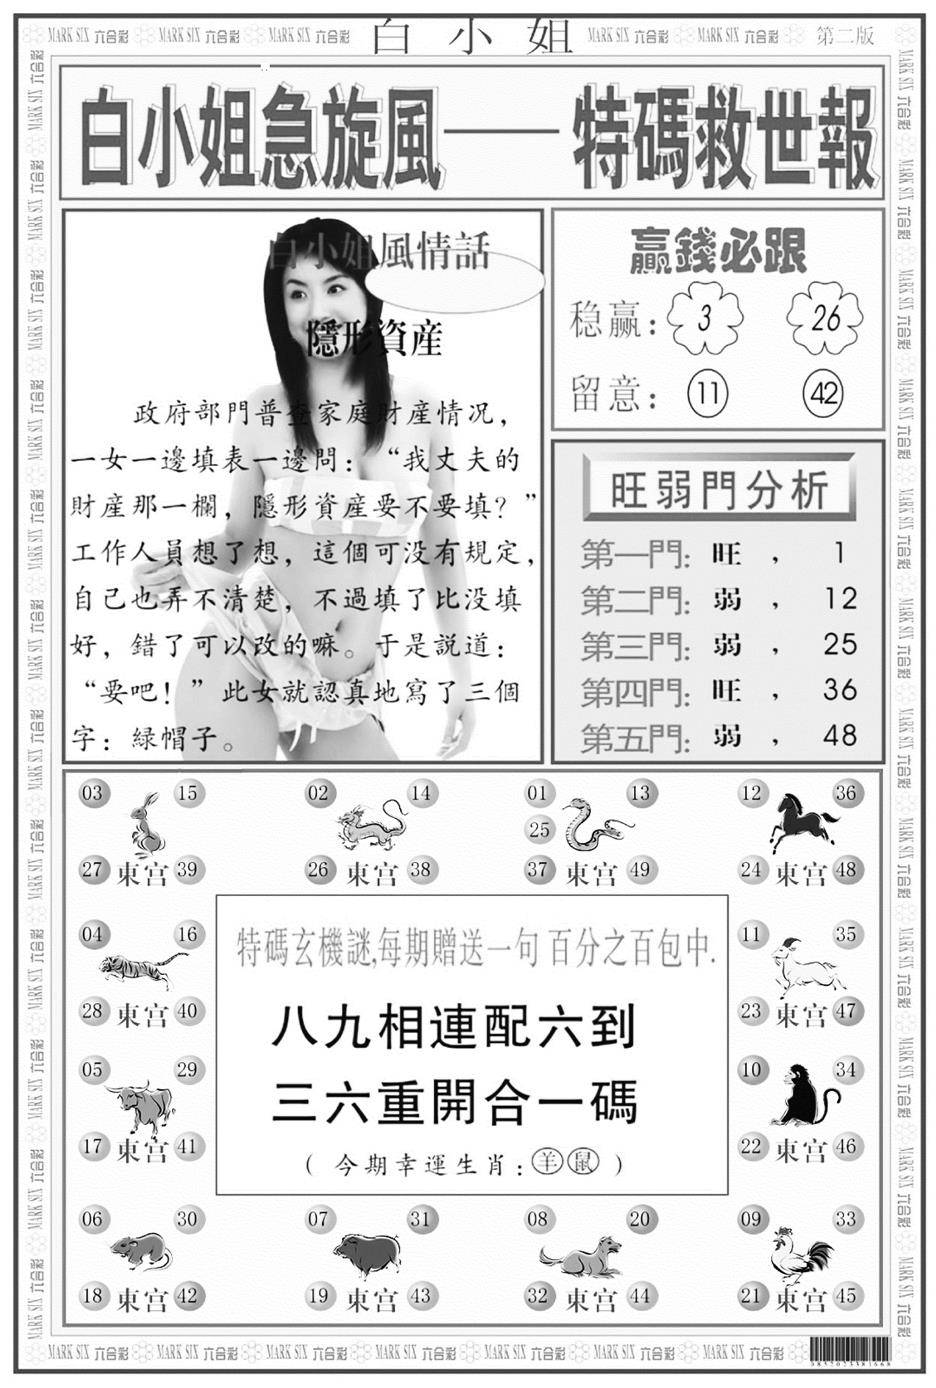 MARK SIX 六合彩 MARK SIX 六合彩 MARK SIX 六合彩 白小姐 MARK SIX 六合彩 MARK SIX 六合彩 第二版
白小姐急旋風——特碼救世報
白小姐風情話
隱形資産
政府部門普查家庭財産情况，
一女一邊填表一邊問：“我丈夫的
財産那一欄，隱形資産要不要填？”
工作人員想了想，這個可没有規定，
自己也弄不清楚，不過填了比没填
好，錯了可以改的嘛。于是説道：
“要吧！”此女就認真地寫了三個
字：緑帽子。
贏錢必跟
稳赢： 3 26
留意： 11 42
旺弱門分析
第一門: 旺 ， 1
第二門: 弱 ， 12
第三門: 弱 ， 25
第四門: 旺 ， 36
第五門: 弱 ， 48
03 15 02 14 01 13 12 36
25
27 東宫 39 26 東宫 38 37 東宫 49 24 東宫 48
04 16 11 35
28 東宫 40 23 東宫 47
05 29 10 34
17 東宫 41 22 東宫 46
特碼玄機謎,每期贈送一句百分之百包中.
八九相連配六到
三六重開合一碼
（今期幸運生肖：羊鼠）
06 30 07 31 08 20 09 33
18 東宫 42 19 東宫 43 32 東宫 44 21 東宫 45
MARK SIX 六合彩 MARK SIX 六合彩 MARK SIX 六合彩 MARK SIX 六合彩 MARK SIX 六合彩 MARK SIX 六合彩 MARK SIX 六合彩